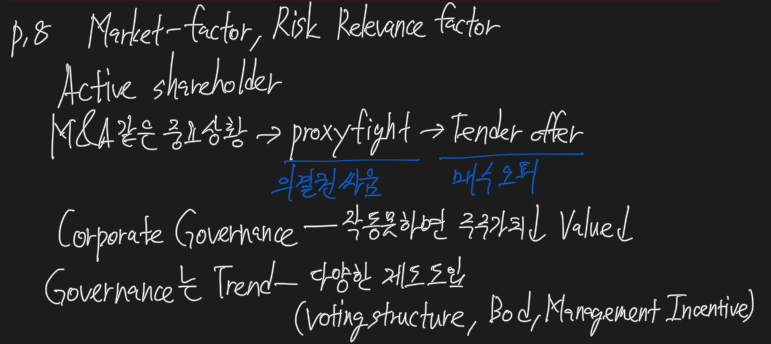 p.8 Market-factor, Risk Relevance factor
Active shareholder
M&A같은 중요상황 → proxyfight → Tender offer
의결권싸움 매수오퍼
Corporate Governance — 작동못하면 주가↓ Value↓
Governance는 Trend — 다양한 제도도입
(voting structure, BoD, Management Incentive)